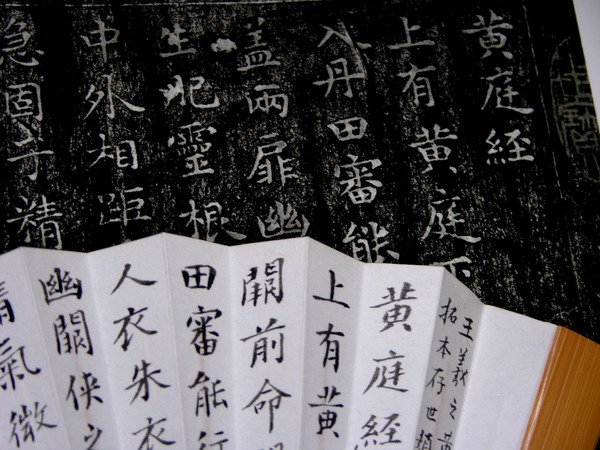 黄庭經
上有黄庭下
入丹田審能
盖兩扉幽
生肥靈根
中外相距
急固子精
王羲之黄
拓本存世
黄庭經
上有黄
關前命
田審能行
人衣朱衣
幽闕俠之
精氣微